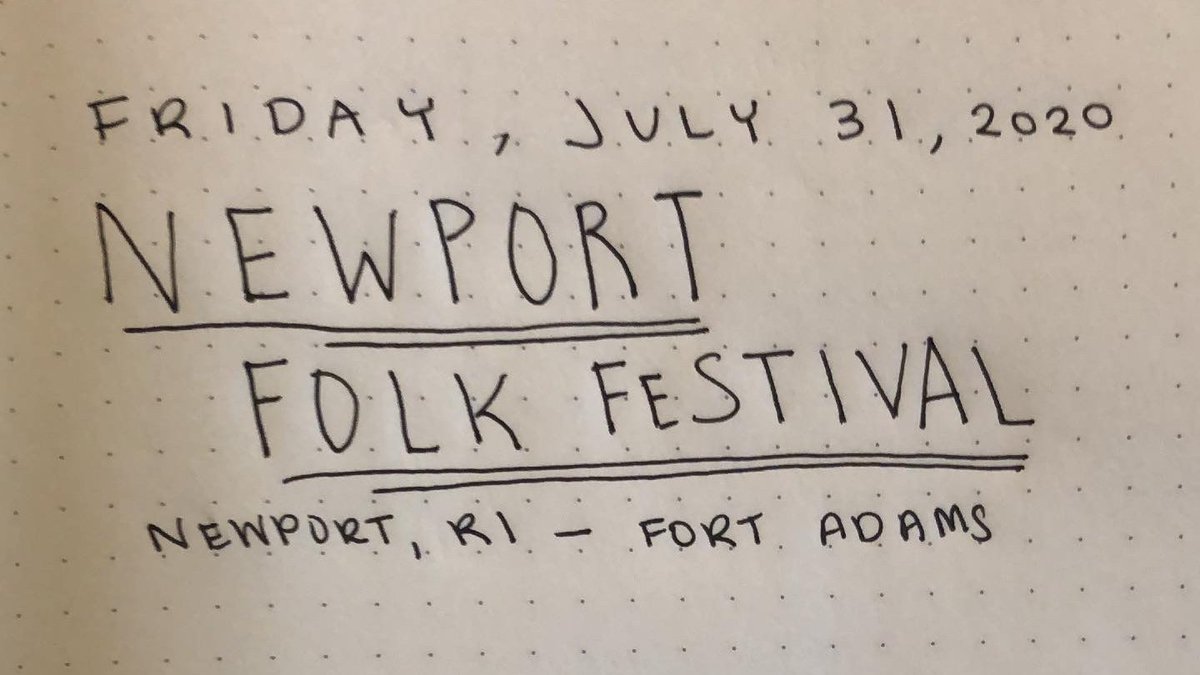 FRIDAY, JULY 31, 2020
NEWPORT
FOLK FESTIVAL
NEWPORT, RI – FORT ADAMS